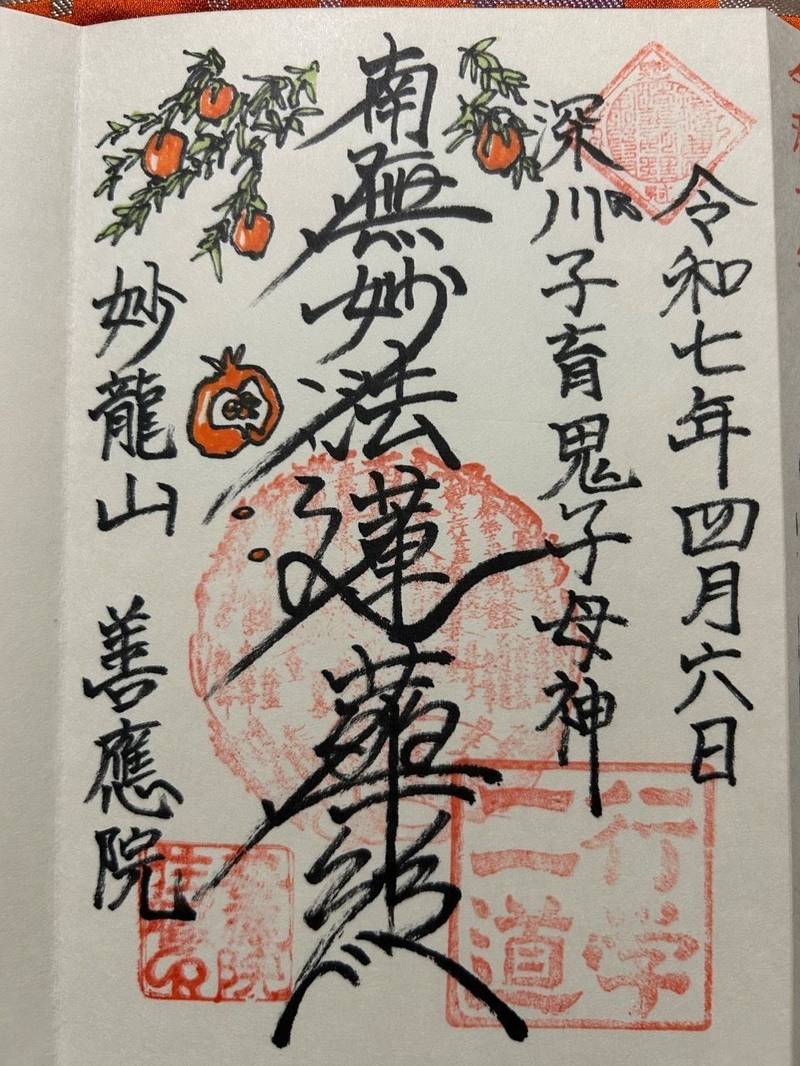 令和七年四月六日
深川子育鬼子母神
南無妙法蓮華経
妙龍山 善應院
行学
二道